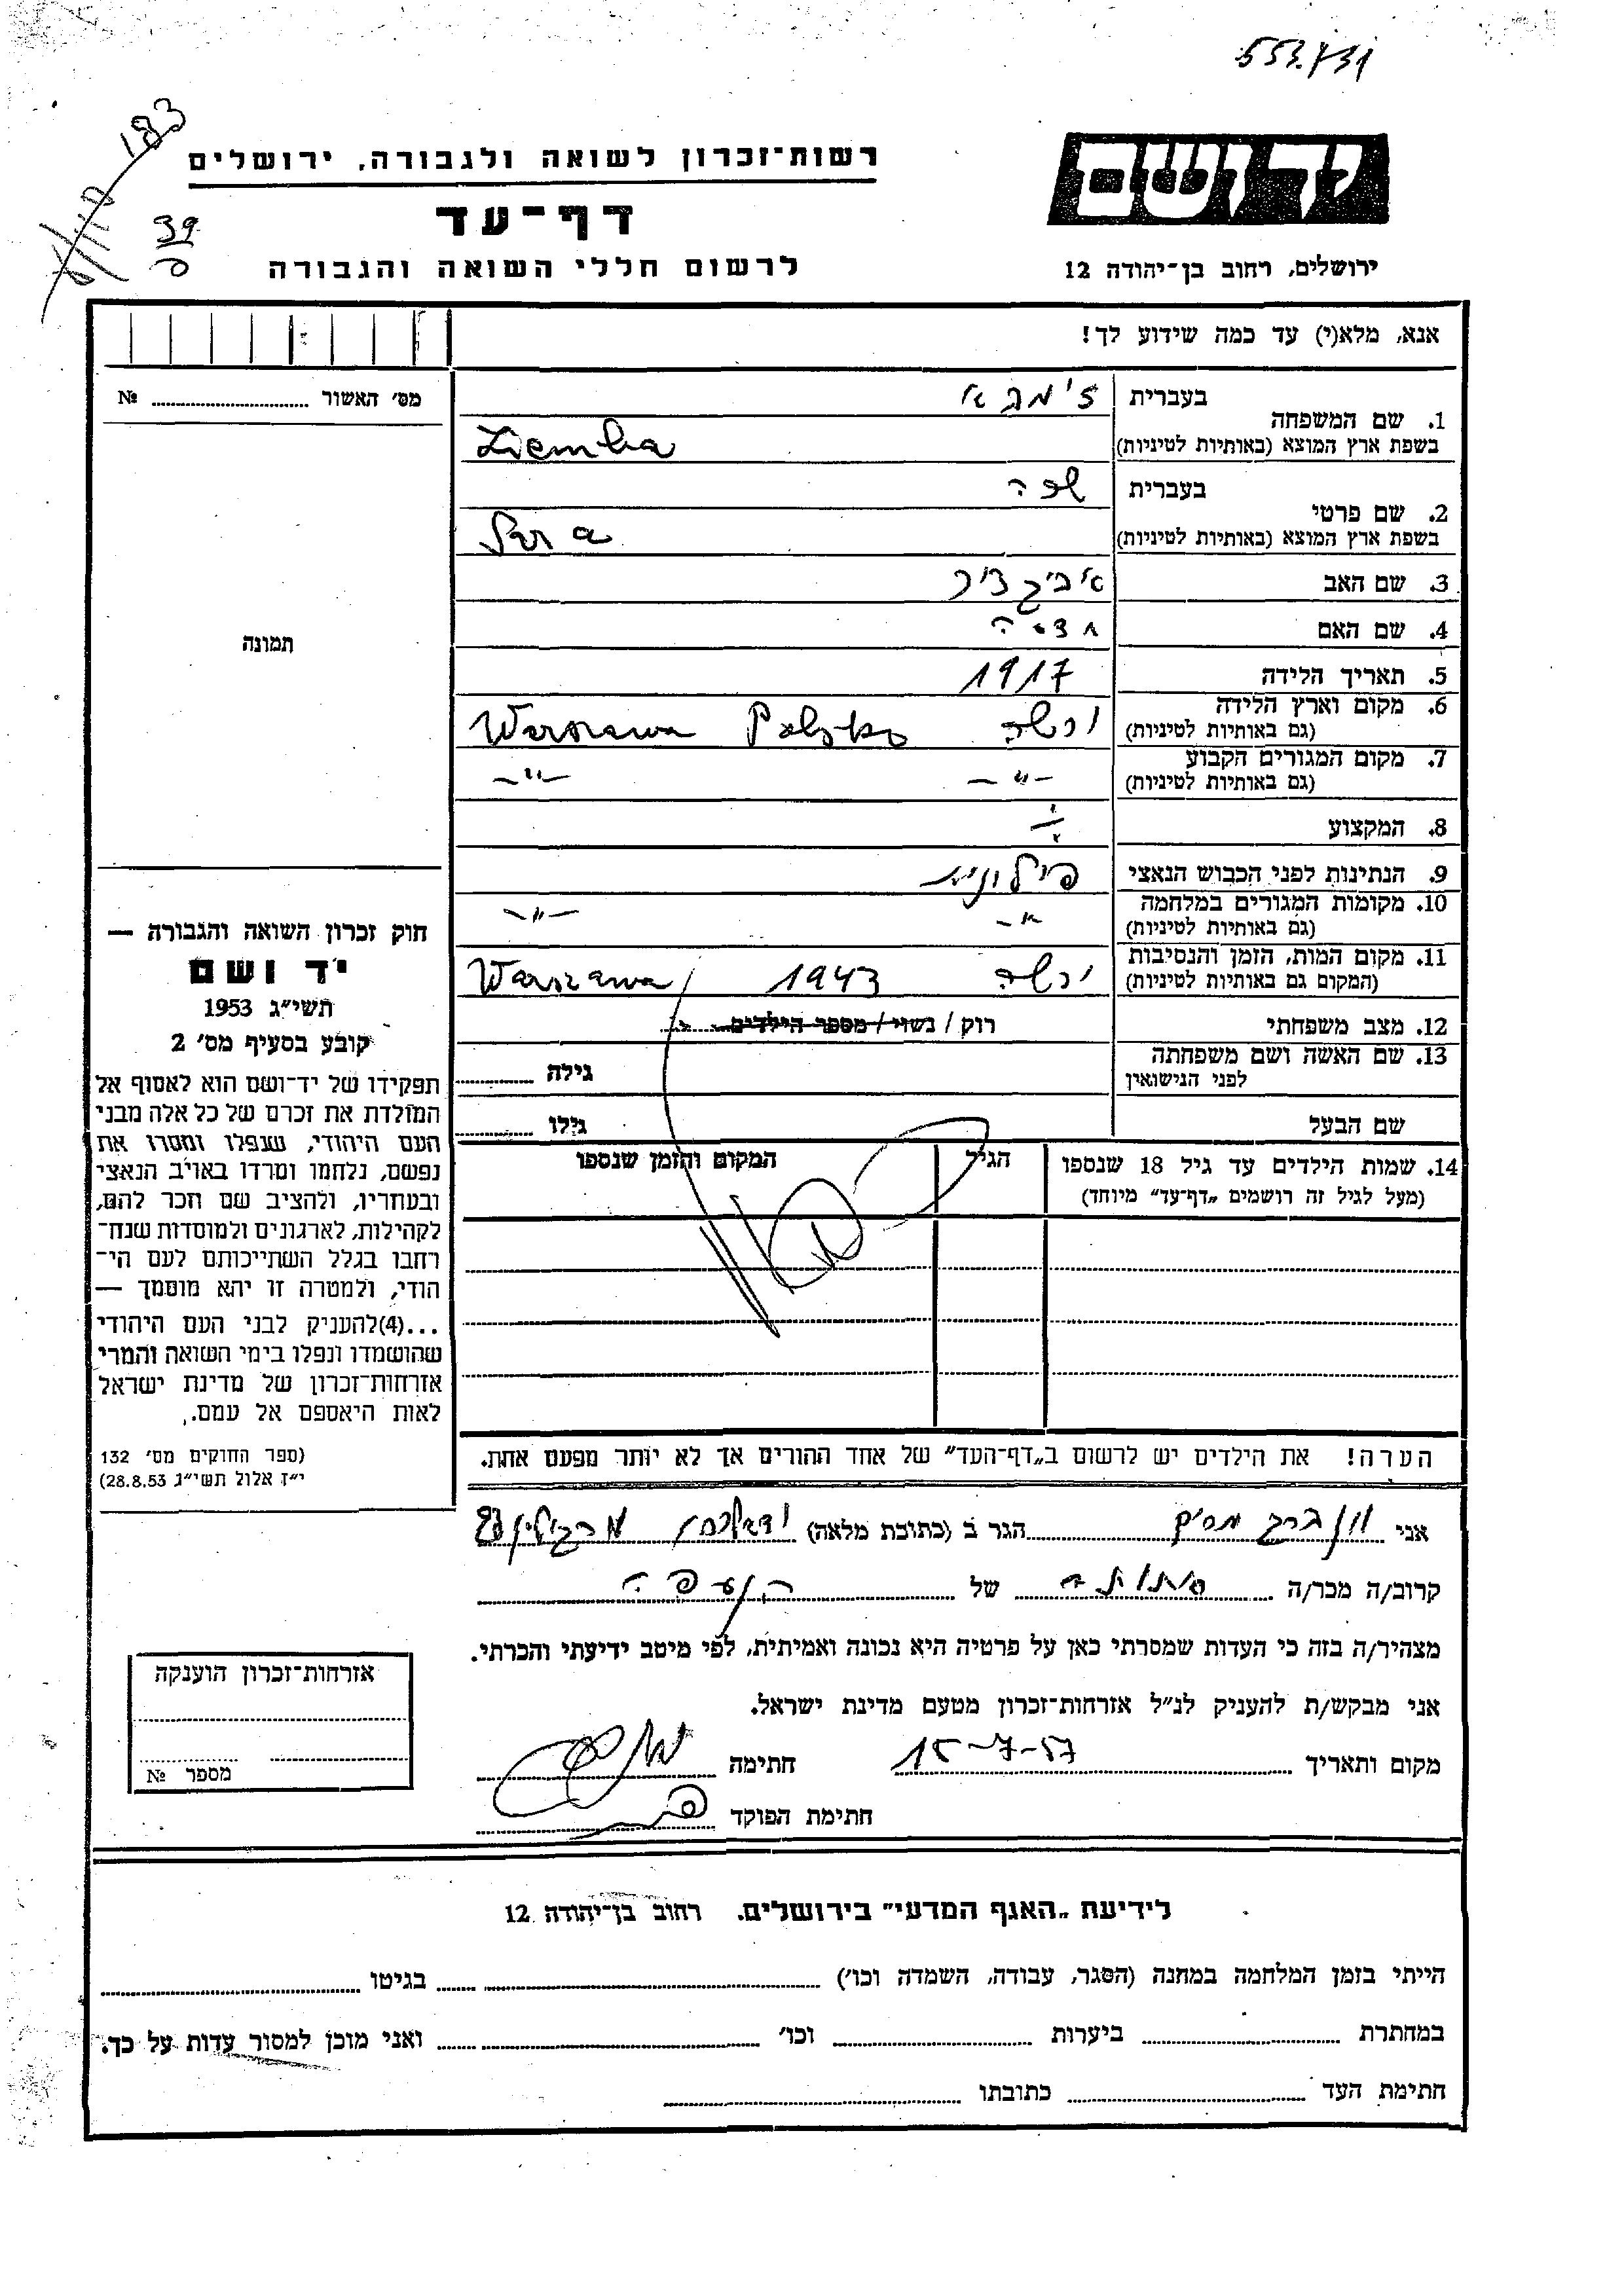 553.731
183
39
יד ושם
רשות־זכרון לשואה ולגבורה, ירושלים
דף־עד
לרשום חללי השואה והגבורה
ירושלים, רחוב בן־יהודה 12
אנא, מלא(י) עד כמה שידוע לך!
מס׳ האשור № 
תמונה
1. שם המשפחה
בעברית
ז'מבא
בשפת ארץ המוצא (באותיות לטיניות)
Ziemba
2. שם פרטי
בעברית
שרה
בשפת ארץ המוצא (באותיות לטיניות)
Sara
3. שם האב
4. שם האם
5. תאריך הלידה 1917
6. מקום וארץ הלידה
(גם באותיות לטיניות)
ורשה Warszawa Polska
7. מקום המגורים הקבוע
(גם באותיות לטיניות)
-"- -"-
8. המקצוע
9. הנתינות לפני הכבוש הנאצי
10. מקומות המגורים במלחמה
(גם באותיות לטיניות)
-"- -"-
11. מקום המות, הזמן והנסיבות
(המקום גם באותיות לטיניות)
ורשה 1943 Warszawa
12. מצב משפחתי רוק / נשוי / מספר הילדים
13. שם האשה ושם משפחתה
לפני הנישואין
גילה
שם הבעל גילו
14. שמות הילדים עד גיל 18 שנספו
(מעל לגיל זה רושמים „דף־עד” מיוחד)
הגיל
המקום והזמן שנספו
חוק זכרון השואה והגבורה —
יד ושם
תשי״ג 1953
קובע בסעיף מס׳ 2
תפקידו של יד־ושם הוא לאסוף אל
המולדת את זכרם של כל אלה מבני
העם היהודי, שנפלו ומסרו את
נפשם, נלחמו ומרדו באויב הנאצי
ובעחריו, ולהציב שם חכר להם,
לקהילות, לארגונים ולמוסדות שנח־
רחבו בגלל השתייכותם לעם הי־
הודי, ולמטרה זו יהא מוסמך —
...(4)להעניק לבני העם היהודי
שהושמדו ונפלו בימי השואה והמרי
אזרחות־זכרון של מדינת ישראל
לאות היאספם אל עמם.
(ספר החוקים מס׳ 132
י״ז אלול תשי״ג 28.8.53)
הערה! את הילדים יש לרשום ב„דף־העד” של אחד ההורים אך לא יותר מפעם אחת.
אני הגר ב (כתובת מלאה)
קרוב/ה מכר/ה של
מצהיר/ה בזה כי העדות שמסרתי כאן על פרטיה היא נכונה ואמיתית, לפי מיטב ידיעתי והכרתי.
אני מבקש/ת להעניק לנ״ל אזרחות־זכרון מטעם מדינת ישראל.
מקום ותאריך 15-7-57 חתימה
חתימת הפוקד
אזרחות־זכרון הוענקה
מספר №
לידיעת „האגף המדעי” בירושלים. רחוב בן־יהודה 12
הייתי בזמן המלחמה במחנה (הסגר, עבודה, השמדה וכו׳) בגיטו
במחתרת ביערות וכו׳ ואני מוכן למסור עדות על כך.
חתימת העד כתובתו